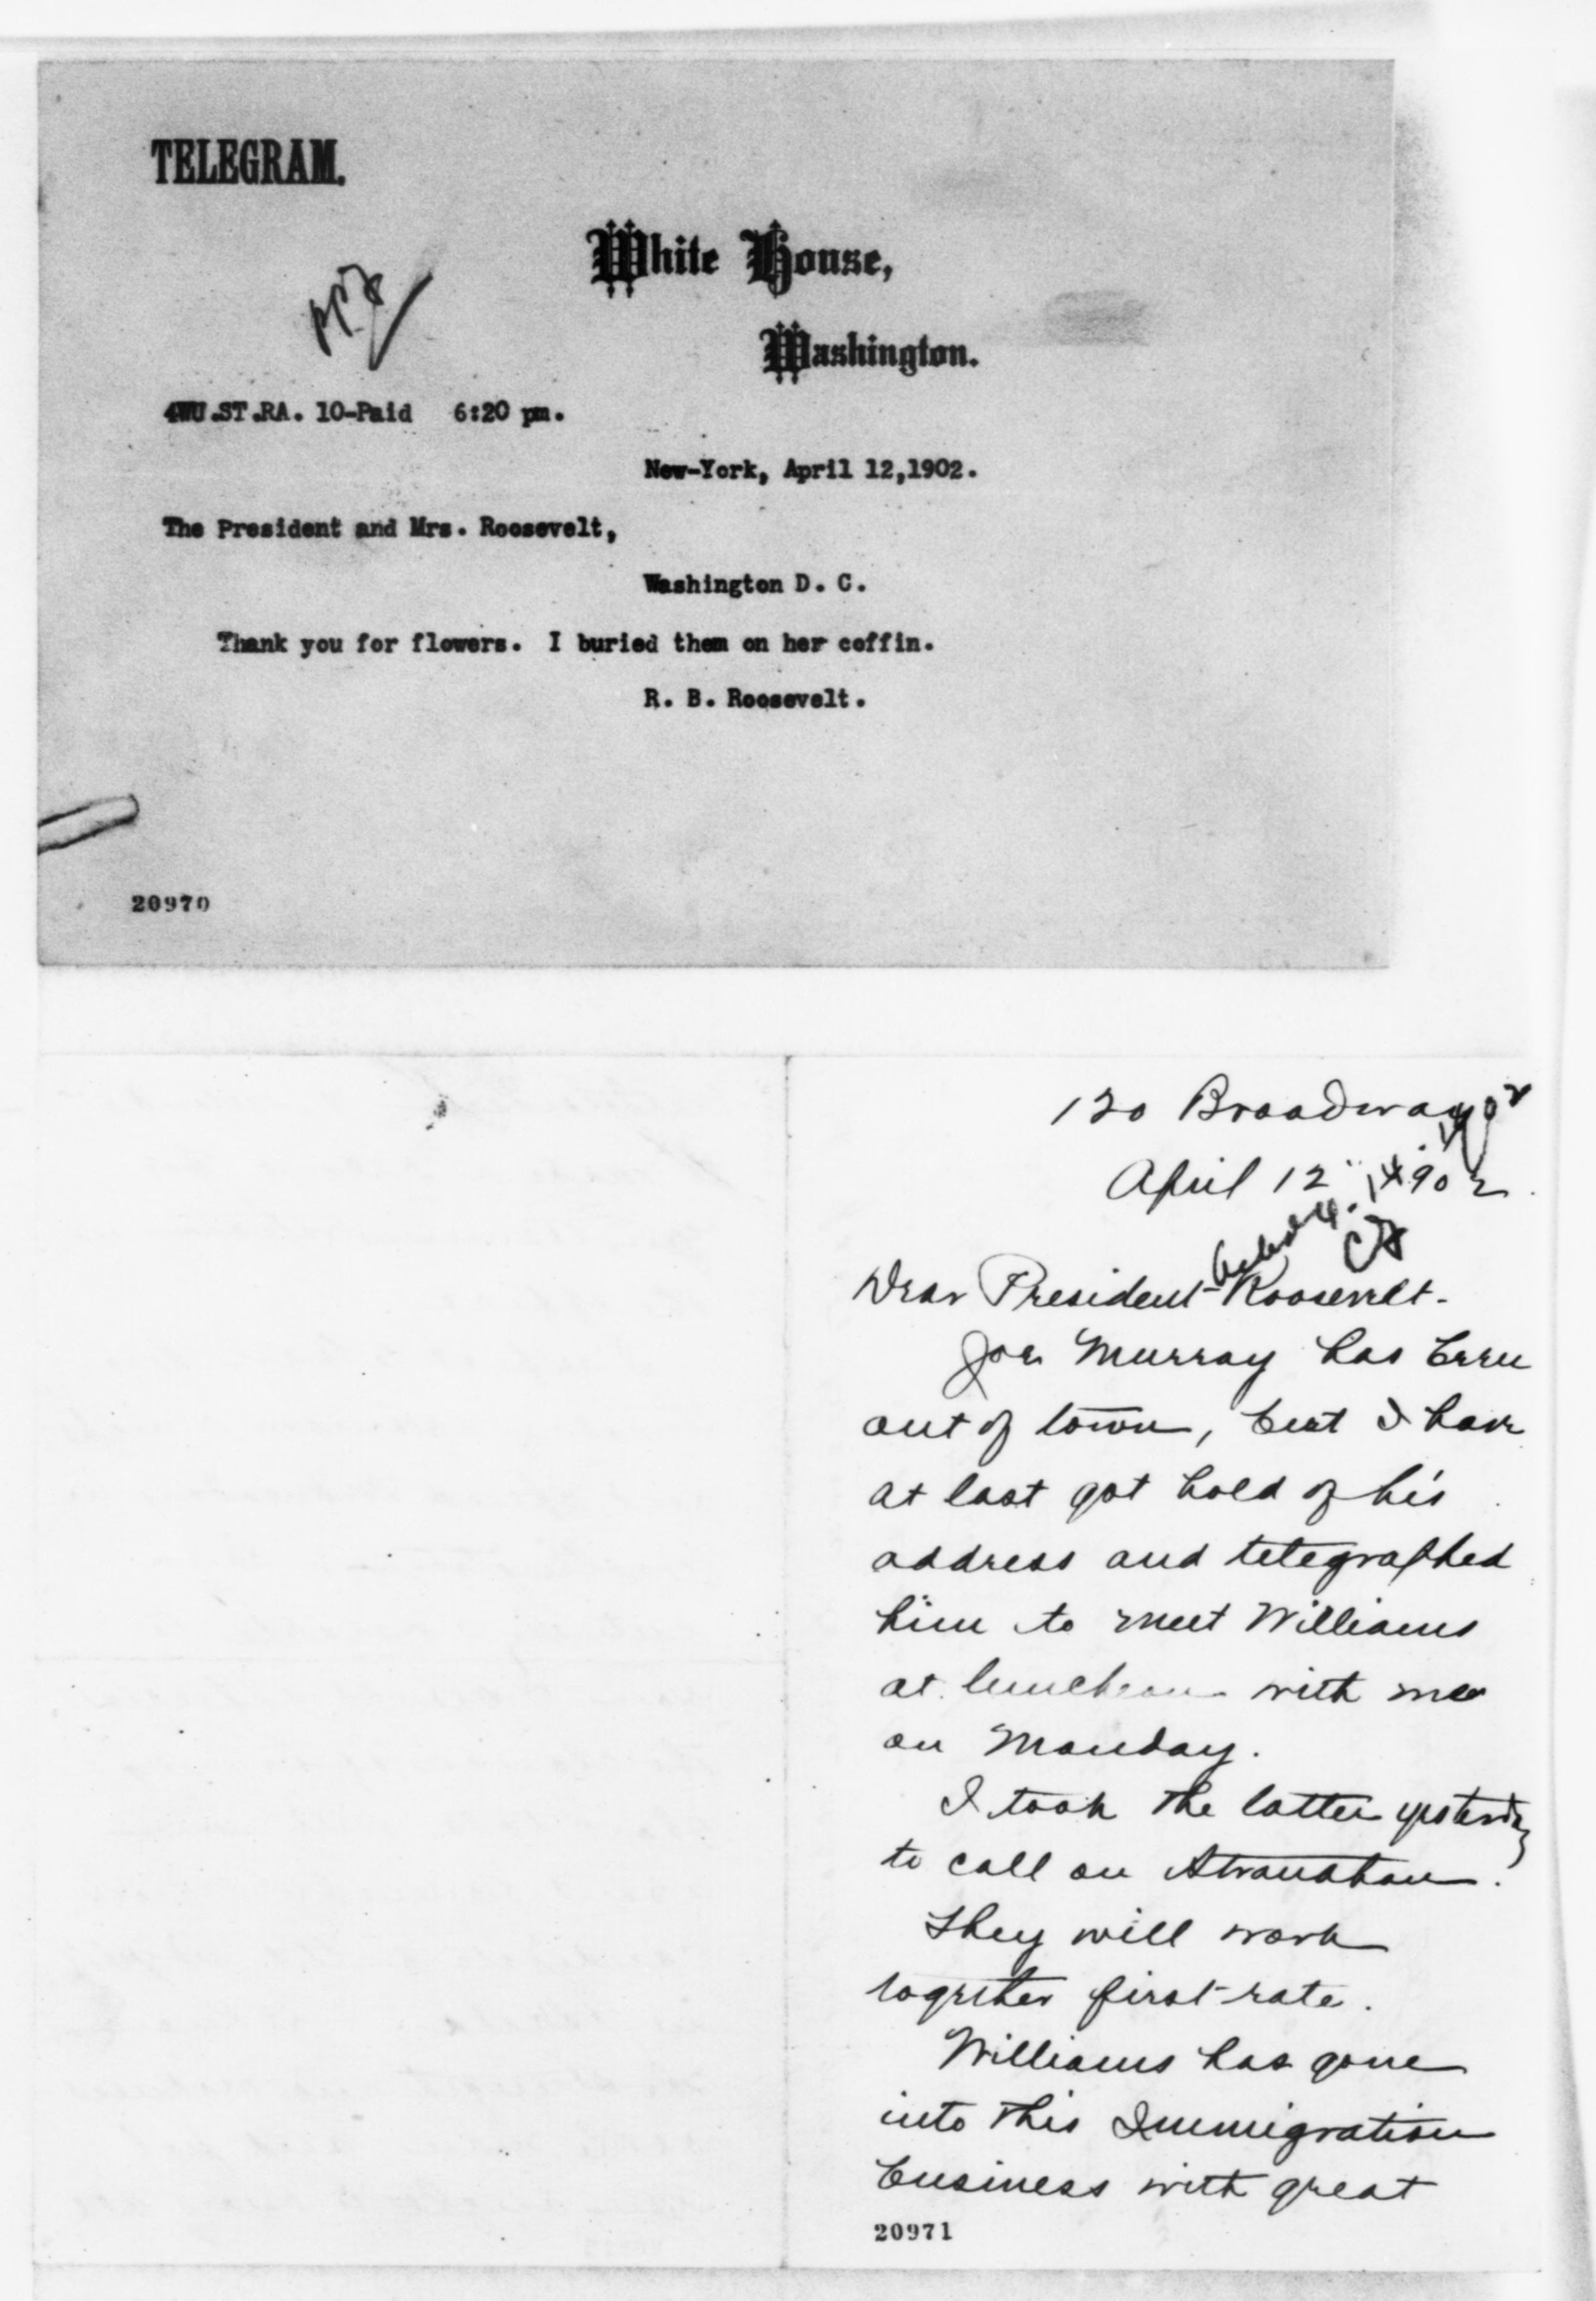 TELEGRAM.
White House,
Washington.
4WU.ST.RA. 10-Paid 6:20 pm.
New-York, April 12,1902.
The President and Mrs. Roosevelt,
Washington D. C.
Thank you for flowers. I buried them on her coffin.
R. B. Roosevelt.
20970
120 Broadway
April 12" 1902
Dear President Roosevelt.
Joe Murray has been
out of town, but I have
at last got hold of his
address and telegraphed
him to meet Williams
at luncheon with me
on Monday.
I took the latter yesterday
to call on Stranahan.
They will work
together first-rate.
Williams has gone
into this Immigration
business with great
20971